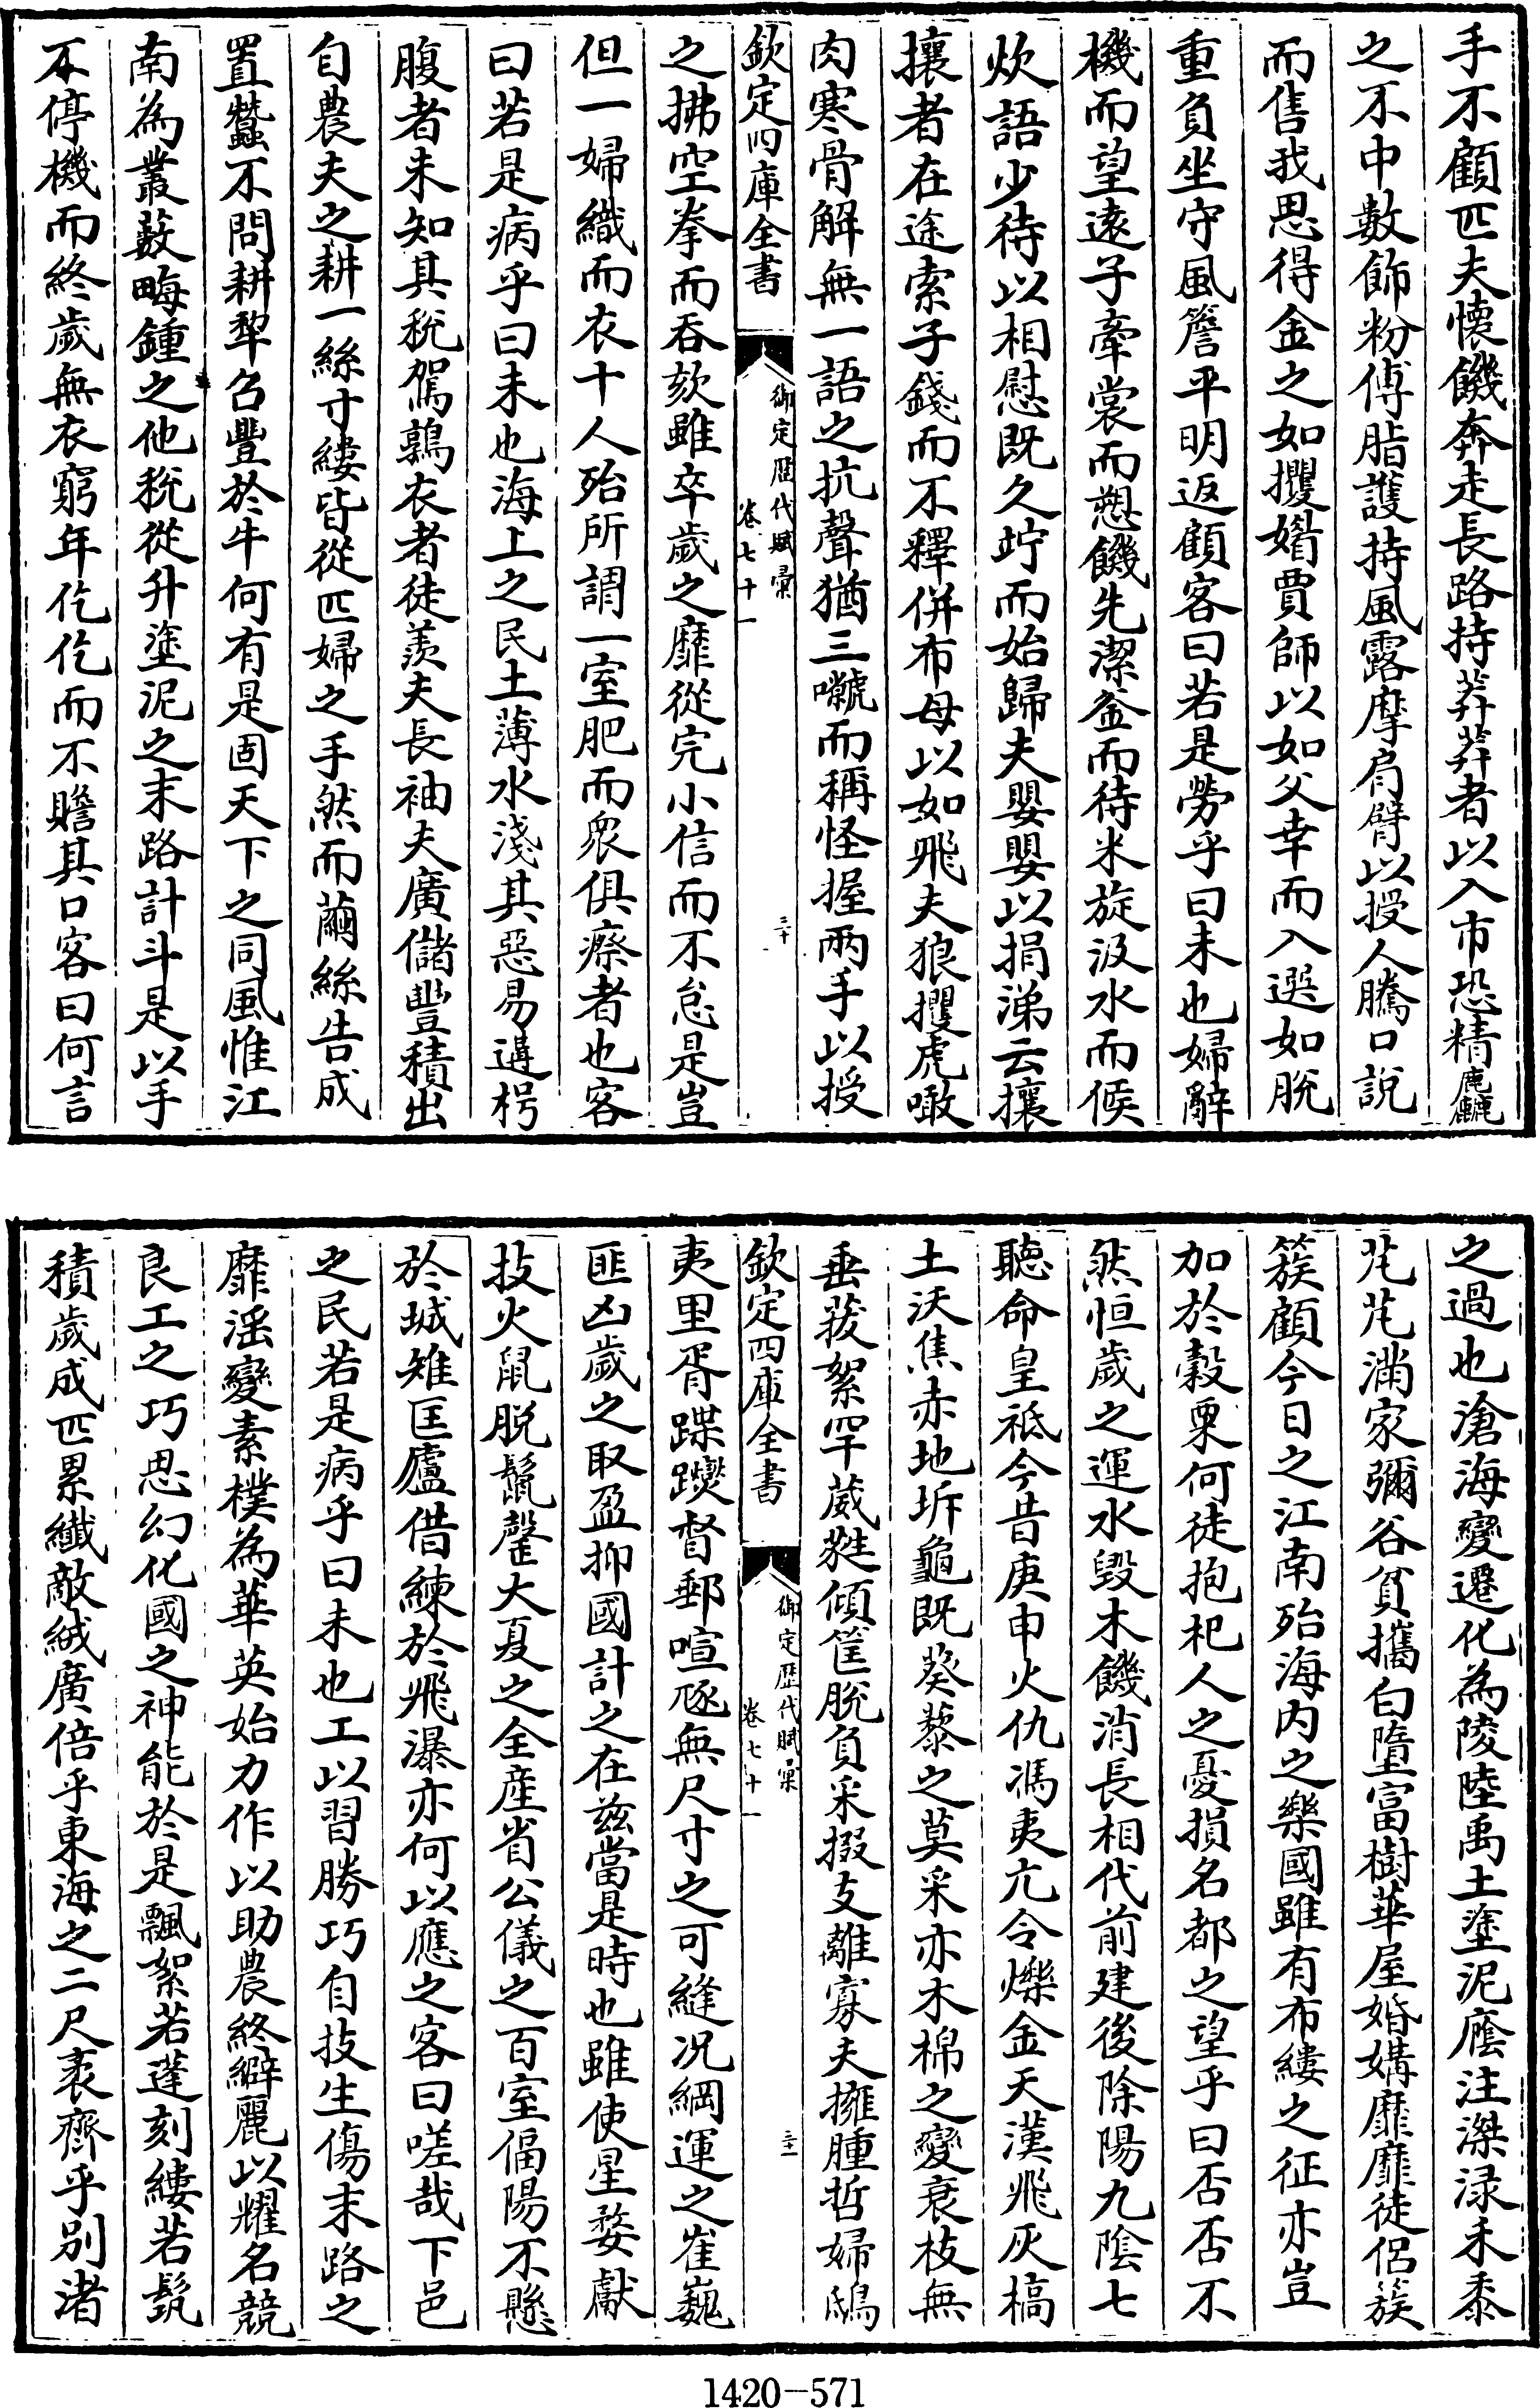 手不顧匹夫懷饑奔走長路持莽莽者以入市恐精麤
之不中數飾粉傅脂護持風露摩肩臂以授人騰口說
而售我思得金之如攫婿賈師以如父幸而入選如脫
重負坐守風簷平明返顧客曰若是勞乎曰未也婦辭
機而望遠子牽裳而愬饑先潔釜而待米旋汲水而候
炊語少待以相慰既久竚而始歸夫嬰嬰以捐涕云攘
攘者在途索子錢而不釋併布母以如飛夫狼攫虎噉
肉寒骨解無一語之抗聲猶三嚬而稱怪握兩手以授
欽定四庫全書
御定歷代賦彙
卷七十一
三十
之拂空拳而吞欬雖卒歲之靡從完小信而不怠是豈
但一婦織而衣十人殆所謂一室肥而衆俱瘵者也客
曰若是病乎曰未也海上之民土薄水淺其惡易遘枵
腹者未知其稅駕鶉衣者徒羨夫長袖夫廣儲豐積出
自農夫之耕一絲寸縷皆從匹婦之手然而繭絲告成
置蠶不問耕犂名豐於牛何有是固天下之同風惟江
南為叢藪畮鍾之他稅從升塗泥之末路計斗是以手
不停機而終歲無衣窮年仡仡而不贍其口客曰何言
之過也滄海變遷化為陵陸禹土塗泥廕注滐淥禾黍
芃芃滿家彌谷貧攜白墮富樹華屋婚媾靡靡徒侶簇
簇顧今日之江南殆海內之樂國雖有布縷之征亦豈
加於穀粟何徒抱杞人之憂損名都之望乎曰否否不
然恒歲之運水毀木饑消長相代前建後除陽九陰七
聽命皇祇今昔庚申火仇馮夷亢令爍金天漢飛灰槁
土沃焦赤地坼龜既葵藜之莫采亦木棉之變衰枝無
垂菽絮罕葳甤傾筐脫負采掇支離寡夫擁腫哲婦鴟
欽定四庫全書
御定歷代賦彙
卷七十一
三十一
夷里胥蹀躞督郵喧豗無尺寸之可縫况綱運之崔巍
匪凶歲之取盈抑國計之在茲當是時也雖使星婺獻
技火鼠脫鬣罄大夏之全產省公儀之百室偪陽不懸
於城雉匡廬借練於飛瀑亦何以應之客曰嗟哉下邑
之民若是病乎曰未也工以習勝巧自技生傷末路之
靡滛變素樸為華英始力作以助農終纎麗以耀名競
良工之巧思幻化國之神能於是飄絮若蓬刻縷若氄
積歲成匹累纖敵絨廣倍乎東海之二尺袤齊乎别渚
1420-571